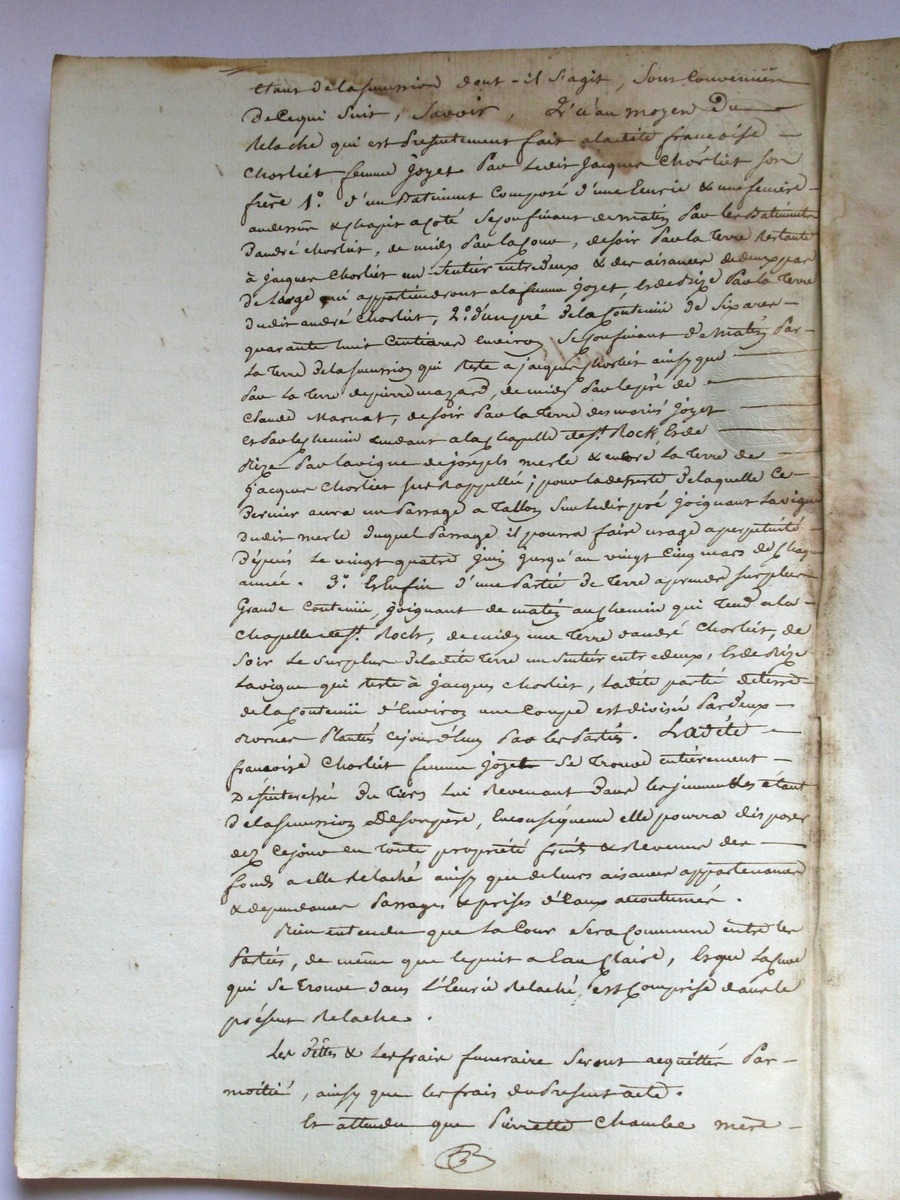 étant de la succession dont-il s'agit, sont convenües
de ce qui suit, Savoir, Qu'au moyen du
Relache qui est Présentement fait a ladite françoise
Chorliet femme Joyet Par Ledit Jacques Chorliet son
frère 1.° d'un Batiment Composé d'une Eurie & une feniere
audessus & chapit a coté Se confinant de matin Par les Batiments
d'andré Chorliet, de midy Par la Cour, de soir Par la Terre Restante
à Jacques Chorliet un Sentier entredeux & des aisances de deux pas
de Large qui appartiendront a la femme Joyet, & de Bize Par la Terre
dudit andré Chorliet, 2.° d'un pré de la Contenüe de Six ares
quarante huit Centiares Environ Se Confinant de Matin Par
La Terre de la succession qui Reste a Jacques Chorliet ainsy que
Par La Terre de pierre mazard, de midy Par le pré de
Claude Marnat, de soir Par la Terre des mariés Joyet
et Par le chemin tendant a la Chapelle de St. Rock, & de
Bize Par la vigne de joseph merle & encore La Terre de
Jacques Chorliet sus Rappellée; pour la deserte de laquelle Ce
Dernier aura un Passage a Tallon Sur Ledit pré Joignant La vigne
dudit merle duquel Passage il pourra faire usage a perpetuité
Dépuis Le vingt quatre juin jusqu'au vingt Cinq mars de Chaque
année. 3.° Et Enfin d'une Partie de Terre a prendre sur plus
Grande Contenüe, joignant de matin au chemin qui Tend a la
Chapelle de St. Rock, de midy une Terre d'andré Chorliet, de
Soir Le Surplus de ladite Terre un Sentier entredeux, & de Bize
La vigne qui Reste à Jacques Chorliet, Ladite partie de terre
de la Contenüe d'Environ une Coupe est divisée Par deux
Bornes Plantés cejourd'huy Par les Parties. Ladite
françoise Chorliet femme Joyet Se Trouve entièrement
Désinteressée du Tiers Lui Revenant dans les jmmeubles étant
de la succession De son père, En conséquence elle pourra disposer
dez ce jour en Toute propriété fruits & Revenus des
fonds a elle Relaché ainsy que de leurs aisances appartenances
& dépendances Passages & prises d'Eaux accoutumés.
Bien entendu que La Cour Sera Commune entre les
Parties, de même que le puit a Eau Claire, & que La cuve
qui Se Trouve dans L'Eurie Relaché, est Comprise dans le
présent Relache.
Les Dettes & Les frais funeraire Seront acquittés Par
moitié, ainsy que les frais du Présent acte.
Et attendu que Pierrette Chamba mère